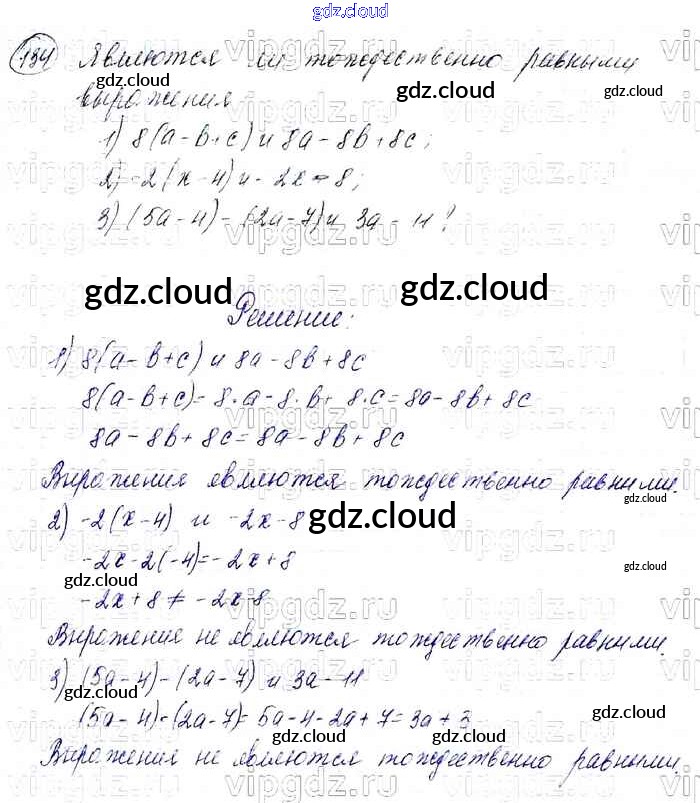 gdz.cloud
134 Являются ли тождественно равными
gdz.cloud gdz.cloud
выражения
1) 8(a-b+c) и 8a-8b+8c;
2) -2(x-4) и -2x-8;
3) (5a-4)-(2a-7) и 3a-11?
gdz.cloud gdz.cloud
Решение:
1) 8(a-b+c) и 8a-8b+8c
8(a-b+c)=8·a-8·b+8·c=8a-8b+8c
8a-8b+8c=8a-8b+8c
Выражения являются тождественно равными.
gdz.cloud
2) -2(x-4) и -2x-8
gdz.cloud
-2x-2(-4)=-2x+8
gdz.cloud gdz.cloud
-2x+8≠-2x-8
Выражение не являются тождественно равными.
3) (5a-4)-(2a-7) и 3a-11
gdz.cloud
(5a-4)-(2a-7)=5a-4-2a+7=3a+3
gdz.cloud gdz.cloud
Выражения не являются тождественно равными.